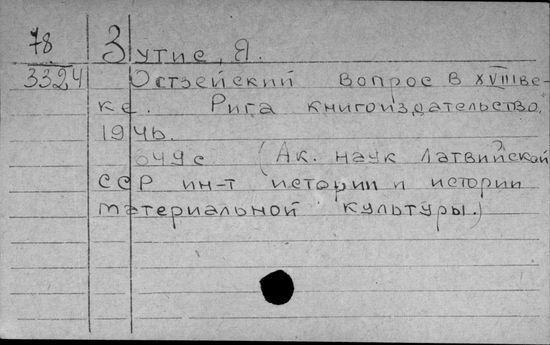 78 Зутис, Я.
3324 Остзейский вопрос в XVIII ве-
ке. Рига книгоиздательство,
1946.
649 с (Ак. наук Латвийской
ССР ин-т истории и истории
материальной культуры.)